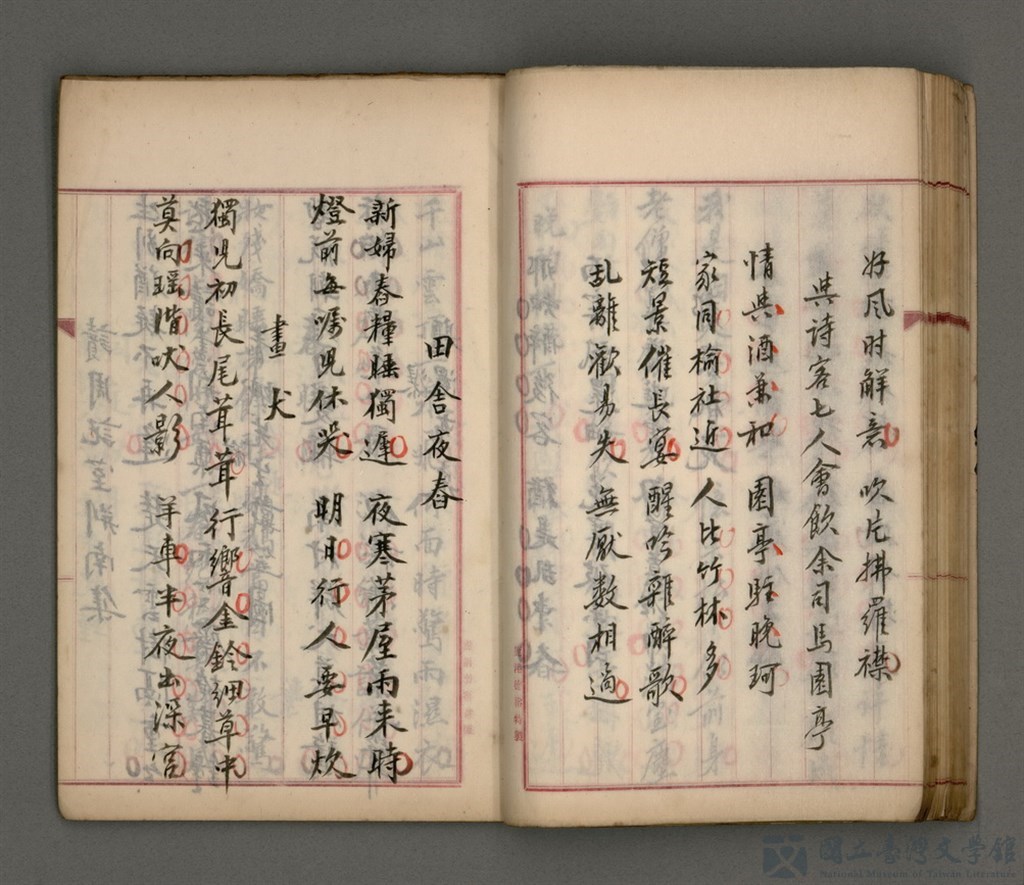 好风时解意 吹片拂羅襟
與诗客七人會飲余司馬園亭
情與酒兼和 園亭駐晚珂
家同榆社近 人比竹林多
短景催長宴 醒吟雜醉歌
乱離歡易失 無厭数相過
田舍夜舂
新婦舂糧睡獨遲 夜寒茅屋雨来時
燈前每嘱児休哭 明日行人要早炊
畫犬
獨児初長尾茸茸 行響金鈴細草中
莫向瑶階吠人影 羊車半夜出深宮
國立臺灣文學館
National Museum of Taiwan Literature